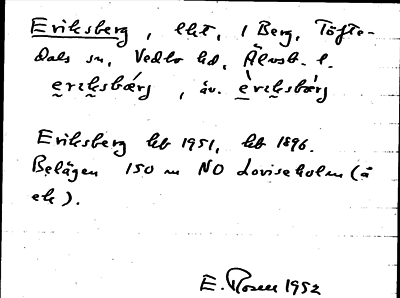 Eriksberg, lht, 1 Berg, Töfte-
dals sn, Vedbo hd, Älvsb. l.
ęrıksbǽrj, äv. ę̀rıksbǽrj
Eriksberg hb 1951, hb 1896.
Belägen 150 m NO Loviseholm (å
ek).
E. Rosen 1952